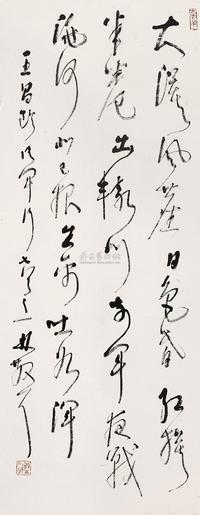 大漠风尘日色昏红旗
半卷出辕门前军夜战
洮河北已报生擒吐谷浑
王昌龄从军行七首之一 林散耳